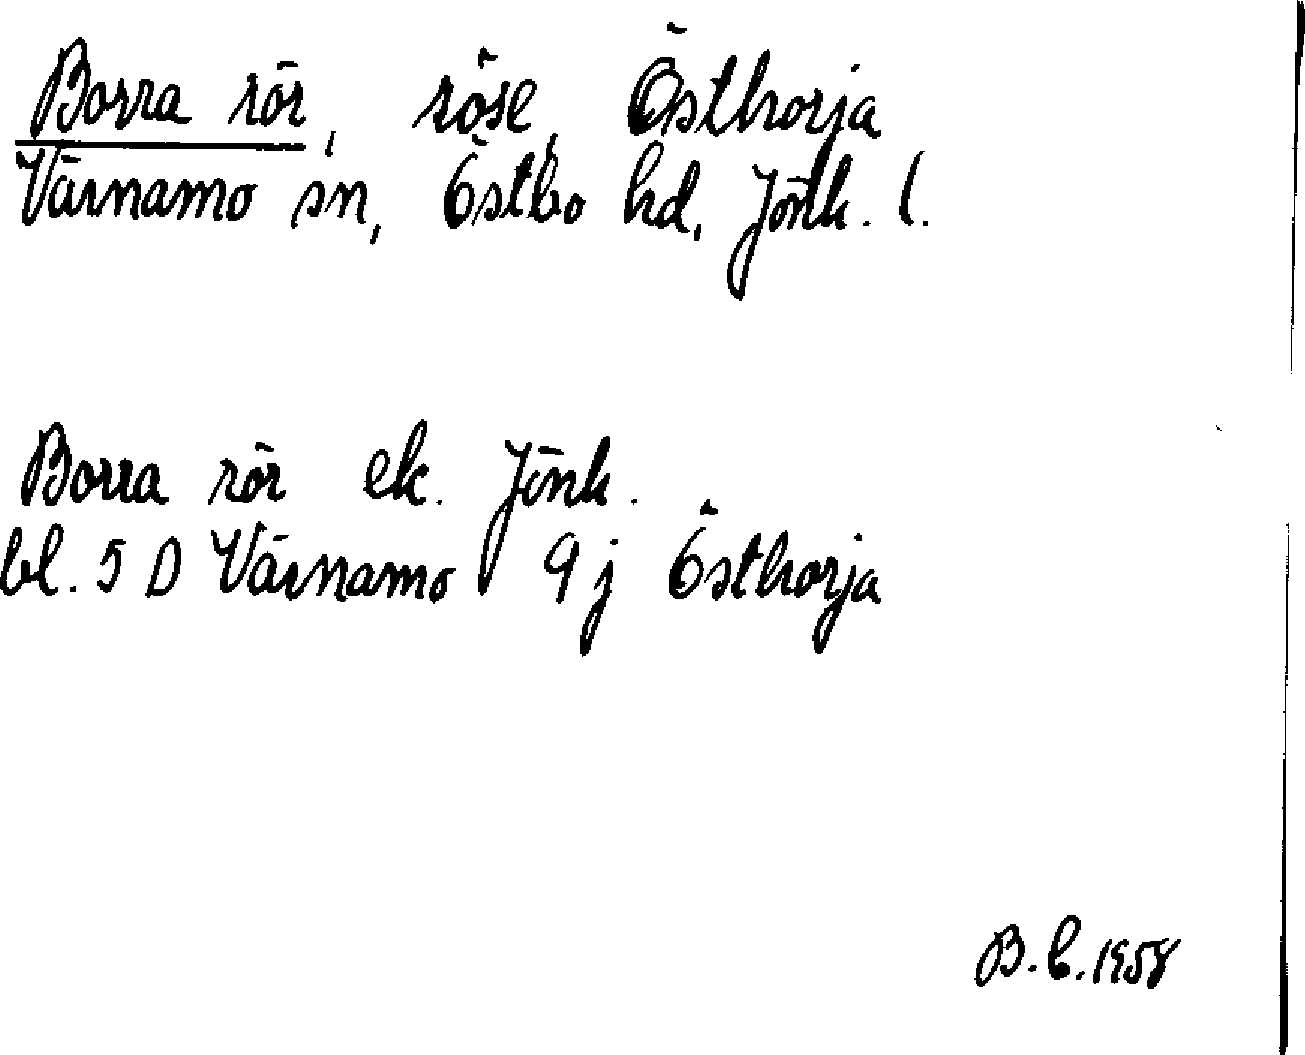 Borra rör, röse, Östhorja
Värnamo sn, Östbo hd, Jönk. l.
Borra rör ek. Jönk.
bl. 5 D Värnamo 9 j Östhorja
B. E. 1958